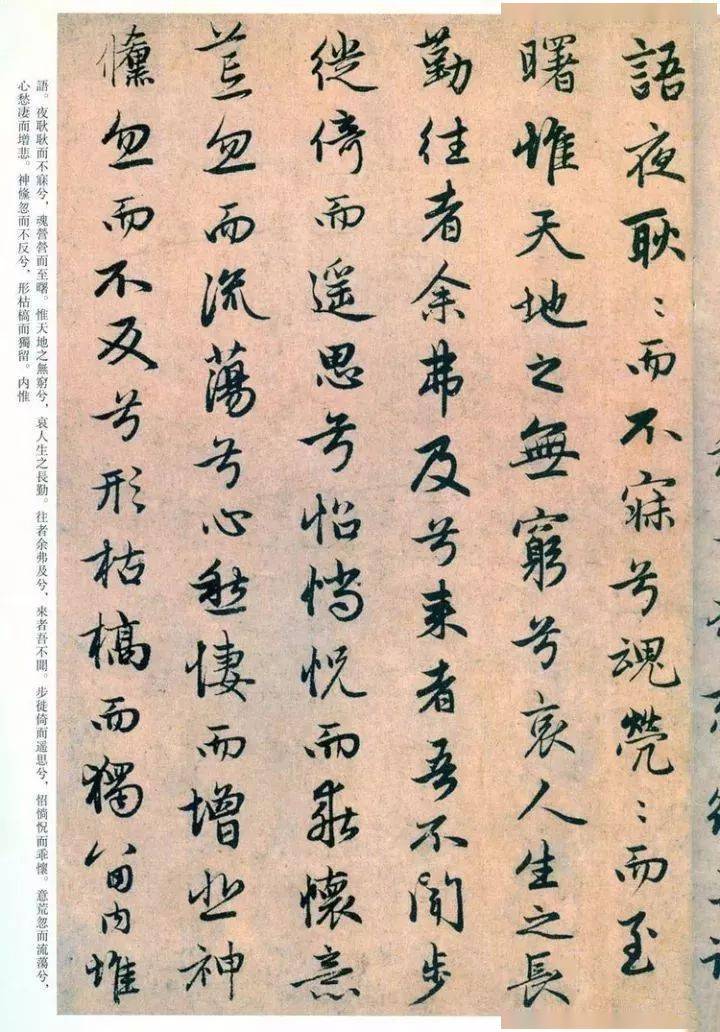 語夜耿〻而不寐兮魂煢〻而至
曙惟天地之無窮兮哀人生之長
勤往者余弗及兮来者吾不聞步
徙倚而遥思兮怊惝怳而乖懷意
荒忽而流蕩兮心愁悽而增悲神
儵忽而不反兮形枯槁而獨留内惟
語。夜耿耿而不寐兮，魂營營而至曙。惟天地之無窮兮，哀人生之長勤。往者余弗及兮，來者吾不聞。步徙倚而遥思兮，怊惝怳而乖懷。意荒忽而流蕩兮，
心愁凄而增悲。神儵忽而不反兮，形枯槁而獨留。内惟